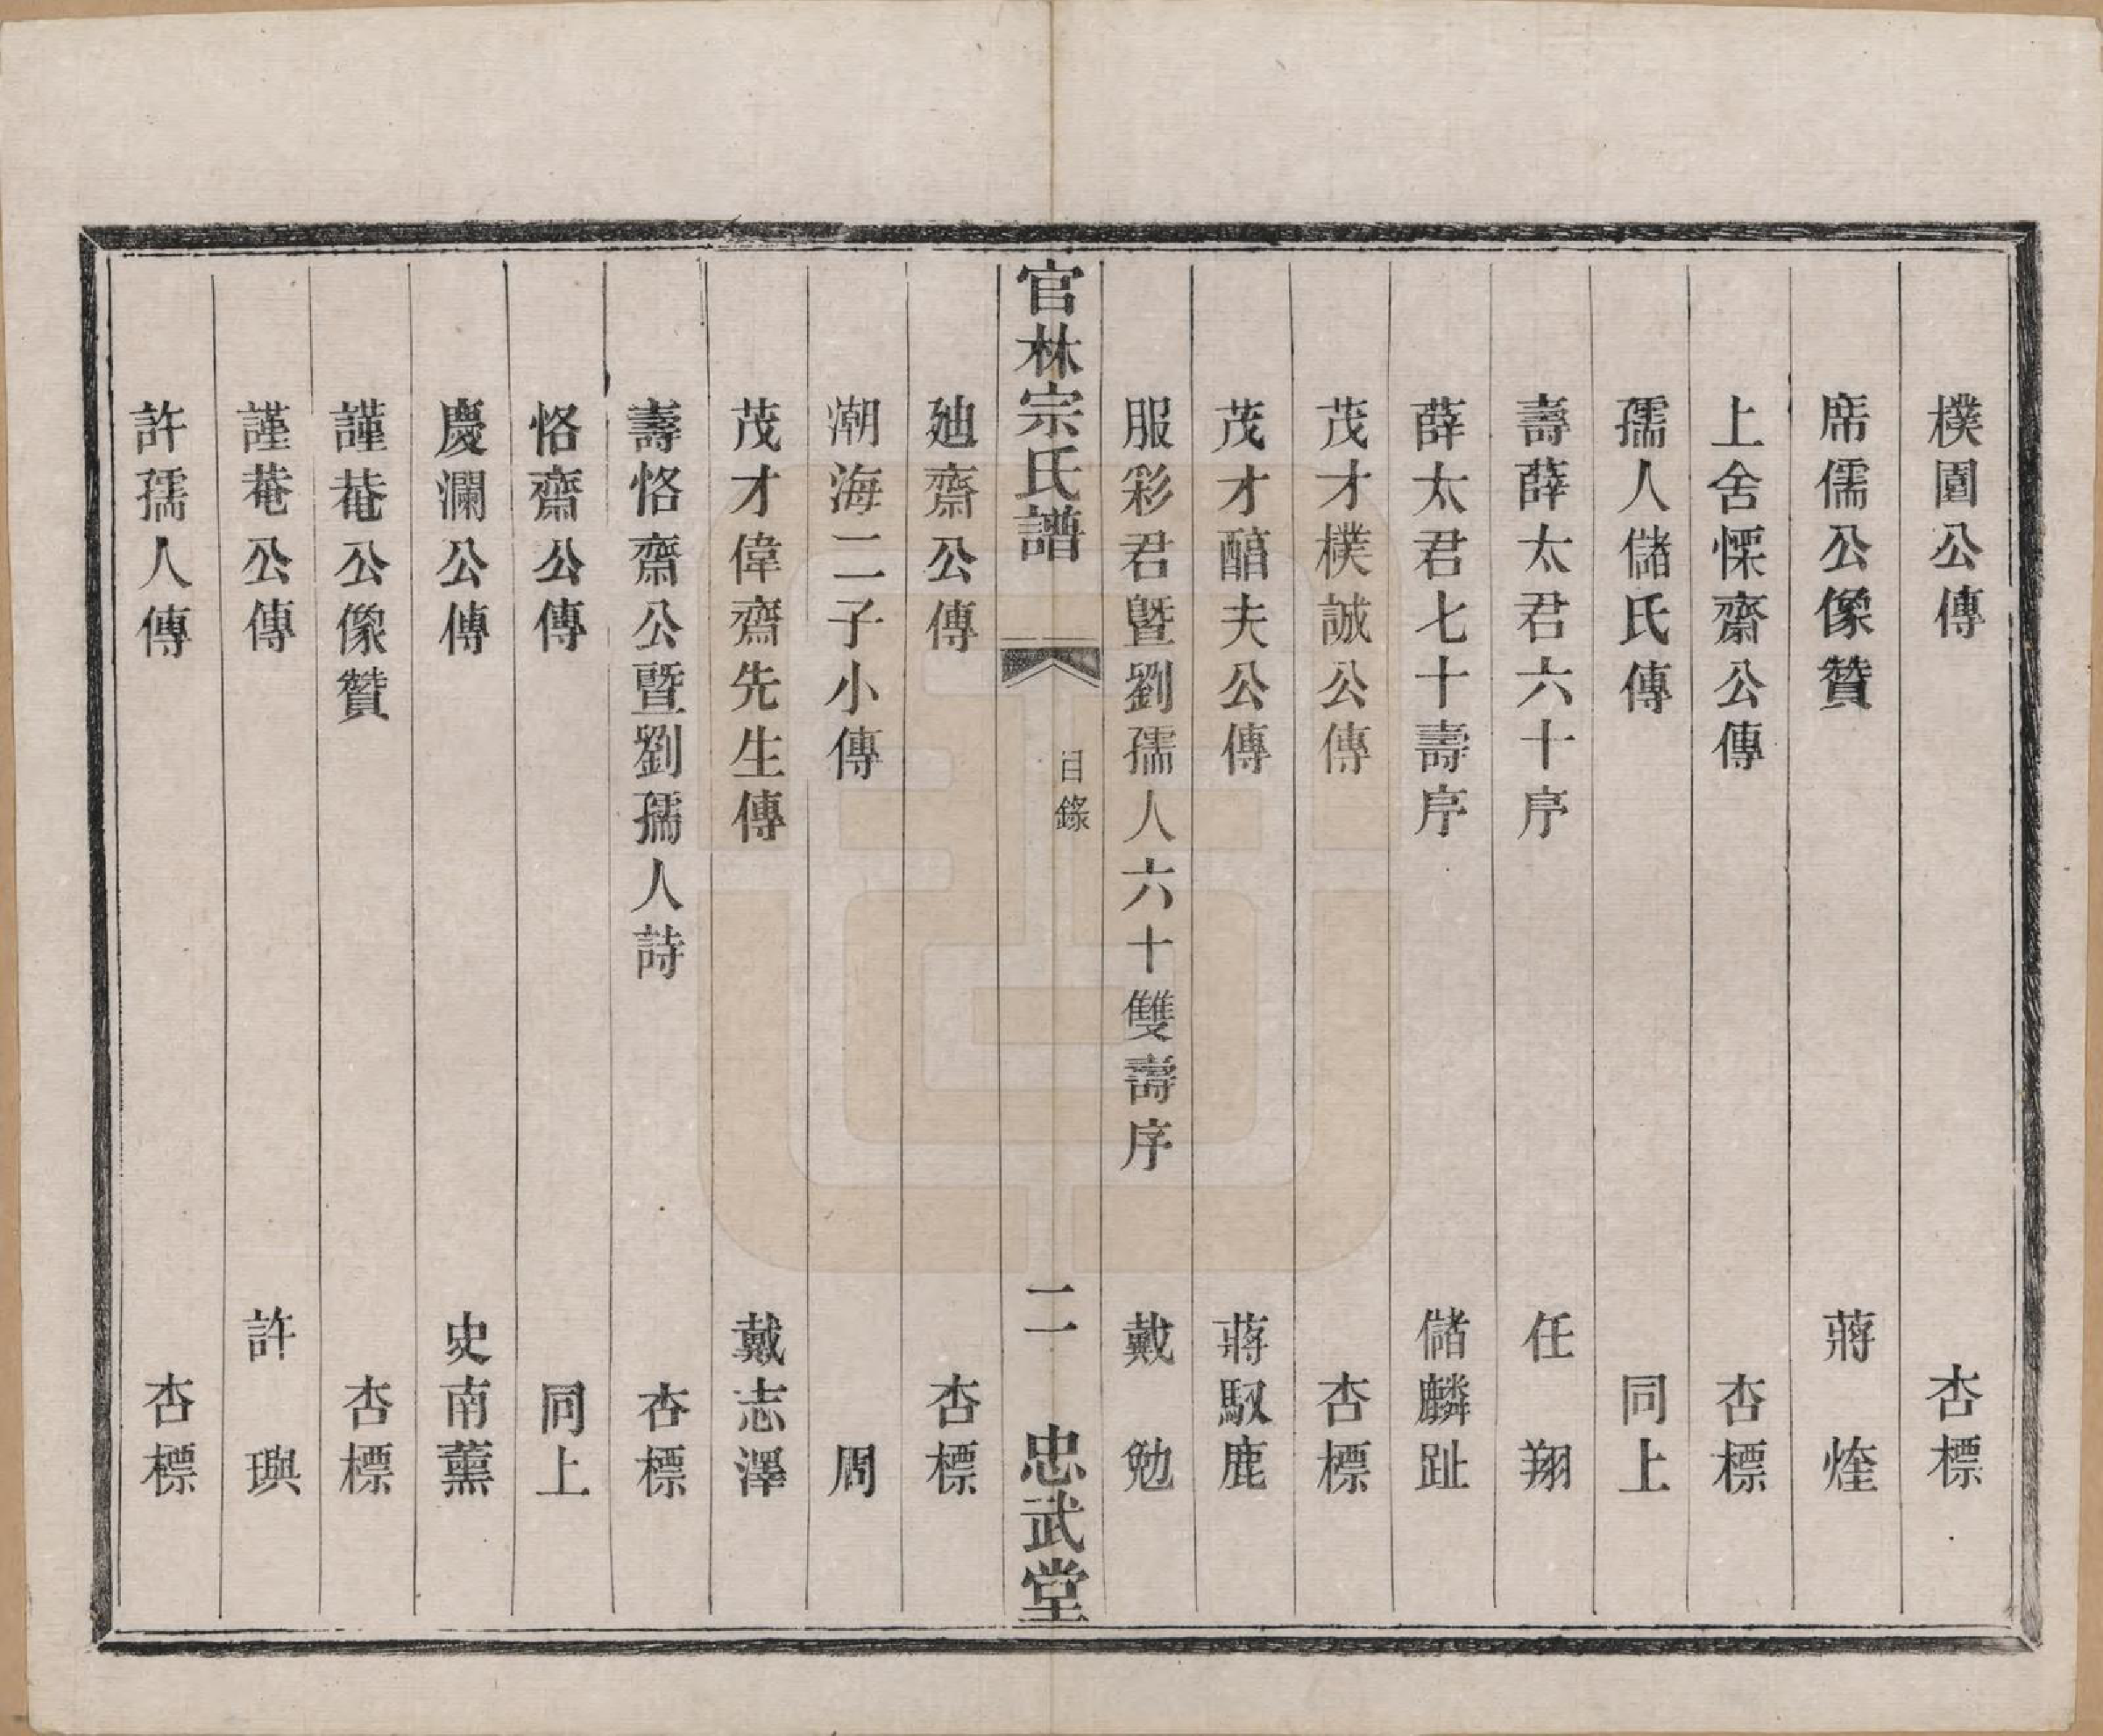 樸園公傳 杏標
席儒公像贊 蔣烇
上舍慄齋公傳 杏標
孺人儲氏傳 同上
壽薛太君六十序 任翔
薛太君七十壽序 儲麟趾
茂才樸誠公傳 杏標
茂才醕夫公傳 蔣馭鹿
服彩君曁劉孺人六十雙壽序 戴勉
官林宗氏譜 目錄 二 忠武堂
廸齋公傳 杏標
潮海二子小傳 周
茂才偉齋先生傳 戴志澤
壽恪齋公曁劉孺人詩 杏標
恪齋公傳 同上
慶瀾公傳 史南薰
謹菴公像贊 杏標
謹菴公傳 許璵
許孺人傳 杏標